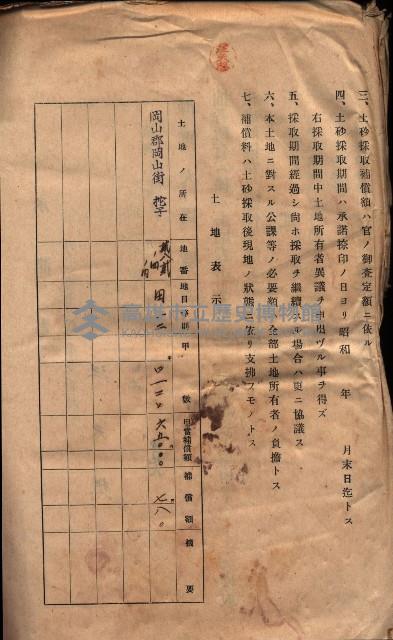 三、土砂採取補償額ハ官ノ御査定額ニ依ル
四、土砂採取期間ハ承諾捺印ノ日ヨリ昭和　年　月末日迄トス
右採取期間中土地所有者異議ヲ申出ヅル事ヲ得ズ
五、採取期間經過シ尚ホ採取ヲ繼續スル場合ハ更ニ協議ス
六、本土地ニ對スル公課等ノ必要額ハ全部土地所有者ノ負擔トス
七、補償料ハ土砂採取後現地ノ狀態ニ依リ支拂フモノトス
土地表示
土地ノ所在
地番
地目
等則
甲數
甲當補償額
補償額
摘要
岡山郡岡山街
田
二
高雄市立歷史博物館
KAOHSIUNG MUSEUM OF HISTORY